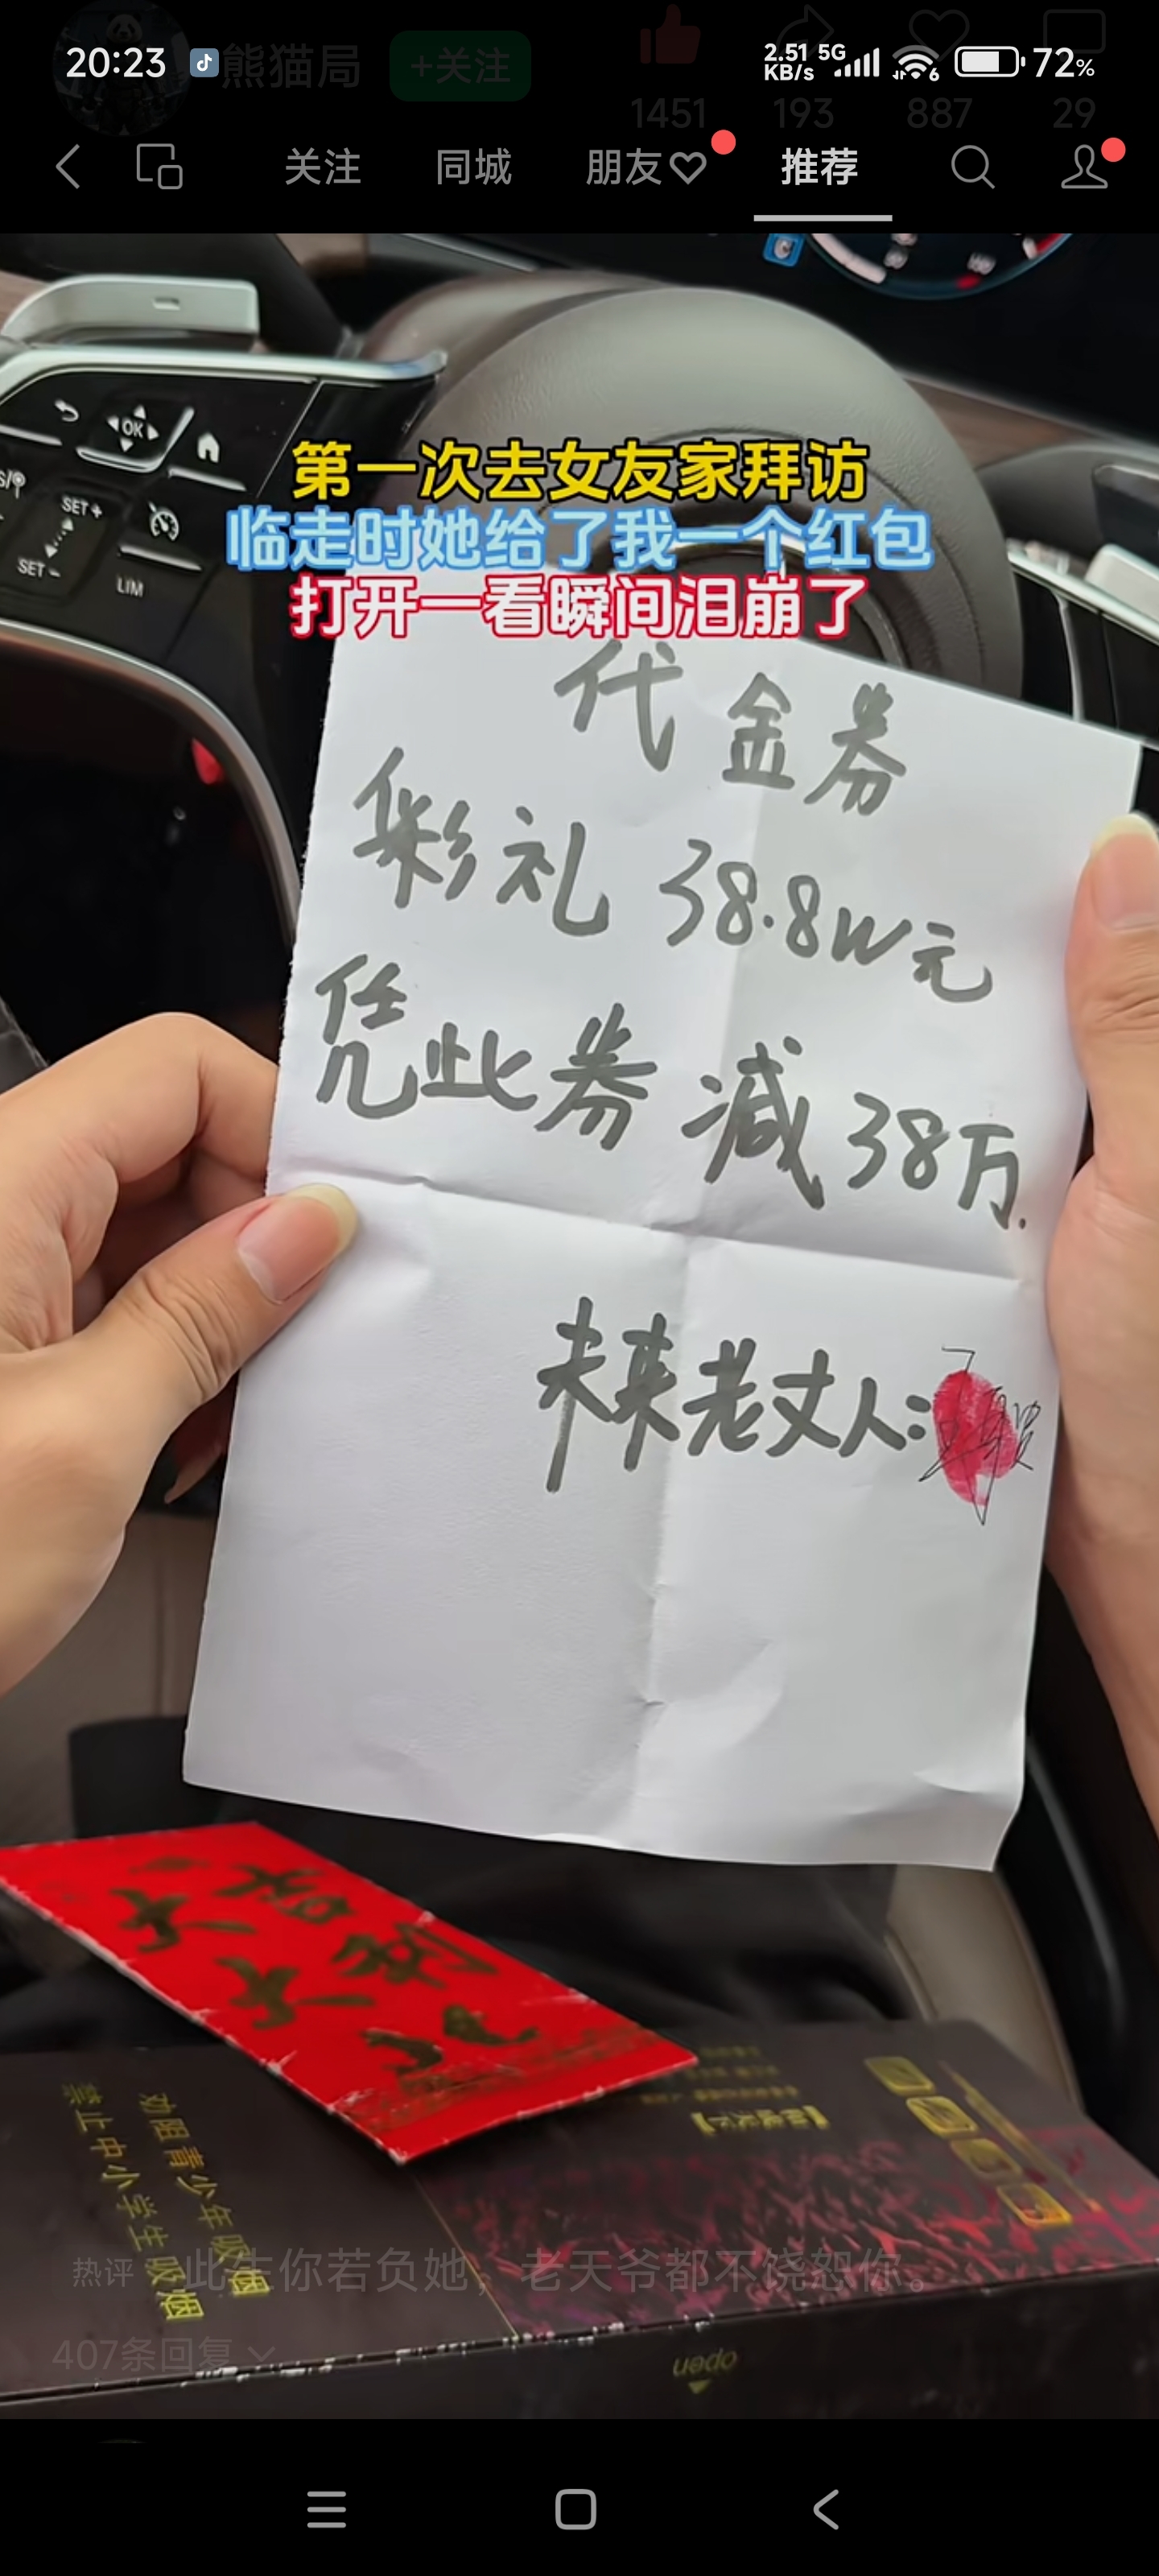 20:23
2.51 KB/s 5G 6 72%
熊猫局 +关注
1451 193 887 29
关注 同城 朋友 推荐
OK
SET+
SET-
LIM
第一次去女友家拜访
临走时她给了我一个红包
打开一看瞬间泪崩了
代金券
彩礼 38.8W元
凭此券 减 38万.
未来老丈人:
劝阻青少年吸烟
禁止中小学生吸烟
热评 此生你若负她，老天爷都不饶恕你。
407条回复
open